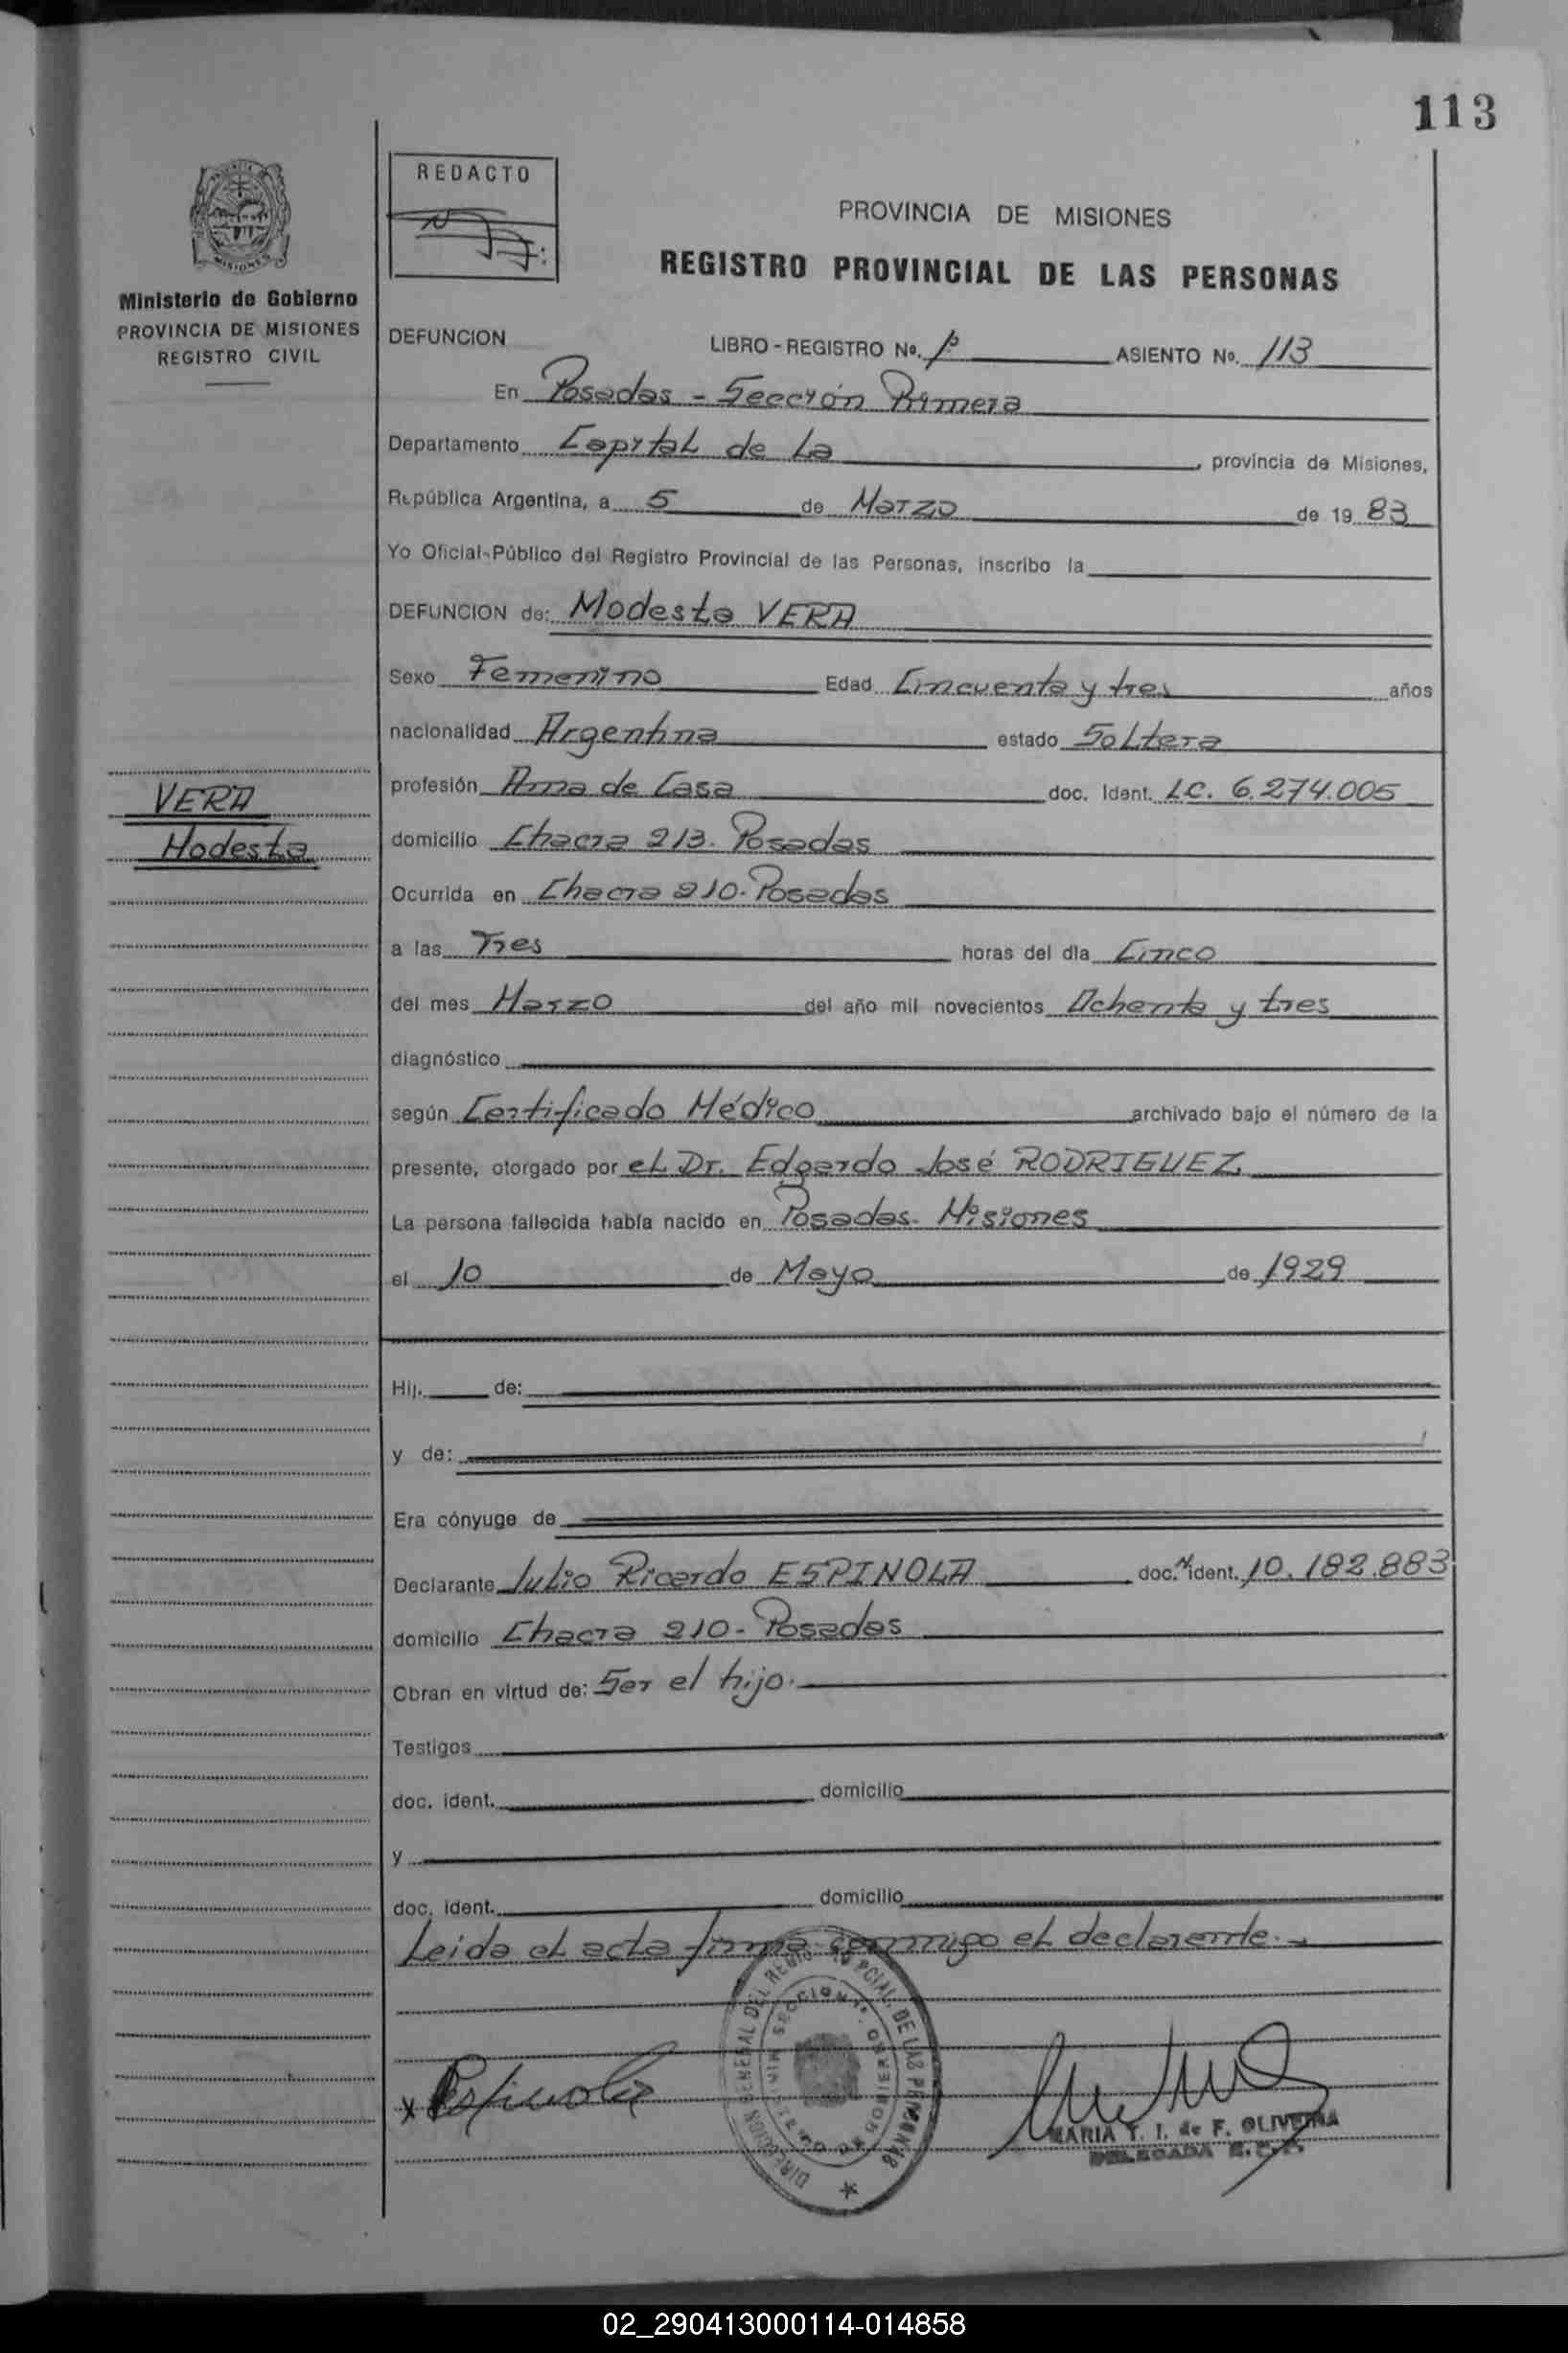 113
REDACTO
PROVINCIA DE MISIONES
REGISTRO PROVINCIAL DE LAS PERSONAS
MISIONES
Ministerio de Gobierno
PROVINCIA DE MISIONES
REGISTRO CIVIL
DEFUNCION LIBRO - REGISTRO Nº. 1º ASIENTO Nº. 113
En Posadas - Sección Primera
Departamento Capital de La, provincia de Misiones,
República Argentina, a 5 de Marzo de 1983
Yo Oficial-Público del Registro Provincial de las Personas, inscribo la
DEFUNCION de: Modesta VERA
Sexo Femenino Edad Cincuenta y tres años
nacionalidad Argentina estado Soltera
VERA
Modesta
profesión Ama de Casa doc. Ident. LC. 6.274.005
domicilio Chacra 213. Posadas
Ocurrida en Chacra 210. Posadas
a las Tres horas del día Cinco
del mes Marzo del año mil novecientos Ochenta y tres
diagnóstico
según Certificado Médico archivado bajo el número de la
presente, otorgado por el Dr. Edgardo José RODRIGUEZ
La persona fallecida había nacido en Posadas. Misiones
el 10 de Mayo de 1929
Hij. de:
y de:
Era cónyuge de
Declarante Julio Ricardo ESPINOLA doc. N. ident. 10.182.883
domicilio Chacra 210 - Posadas
Obran en virtud de: Ser el hijo.
Testigos
doc. ident. domicilio
y
doc. ident. domicilio
Leida el acta firma conmigo el declarante.
DIRECCION GENERAL DEL REGISTRO PCIAL. DE LAS PERSONAS
x Espinola
MARIA T. I. de F. OLIVEIRA
DELEGADA
02_290413000114-014858